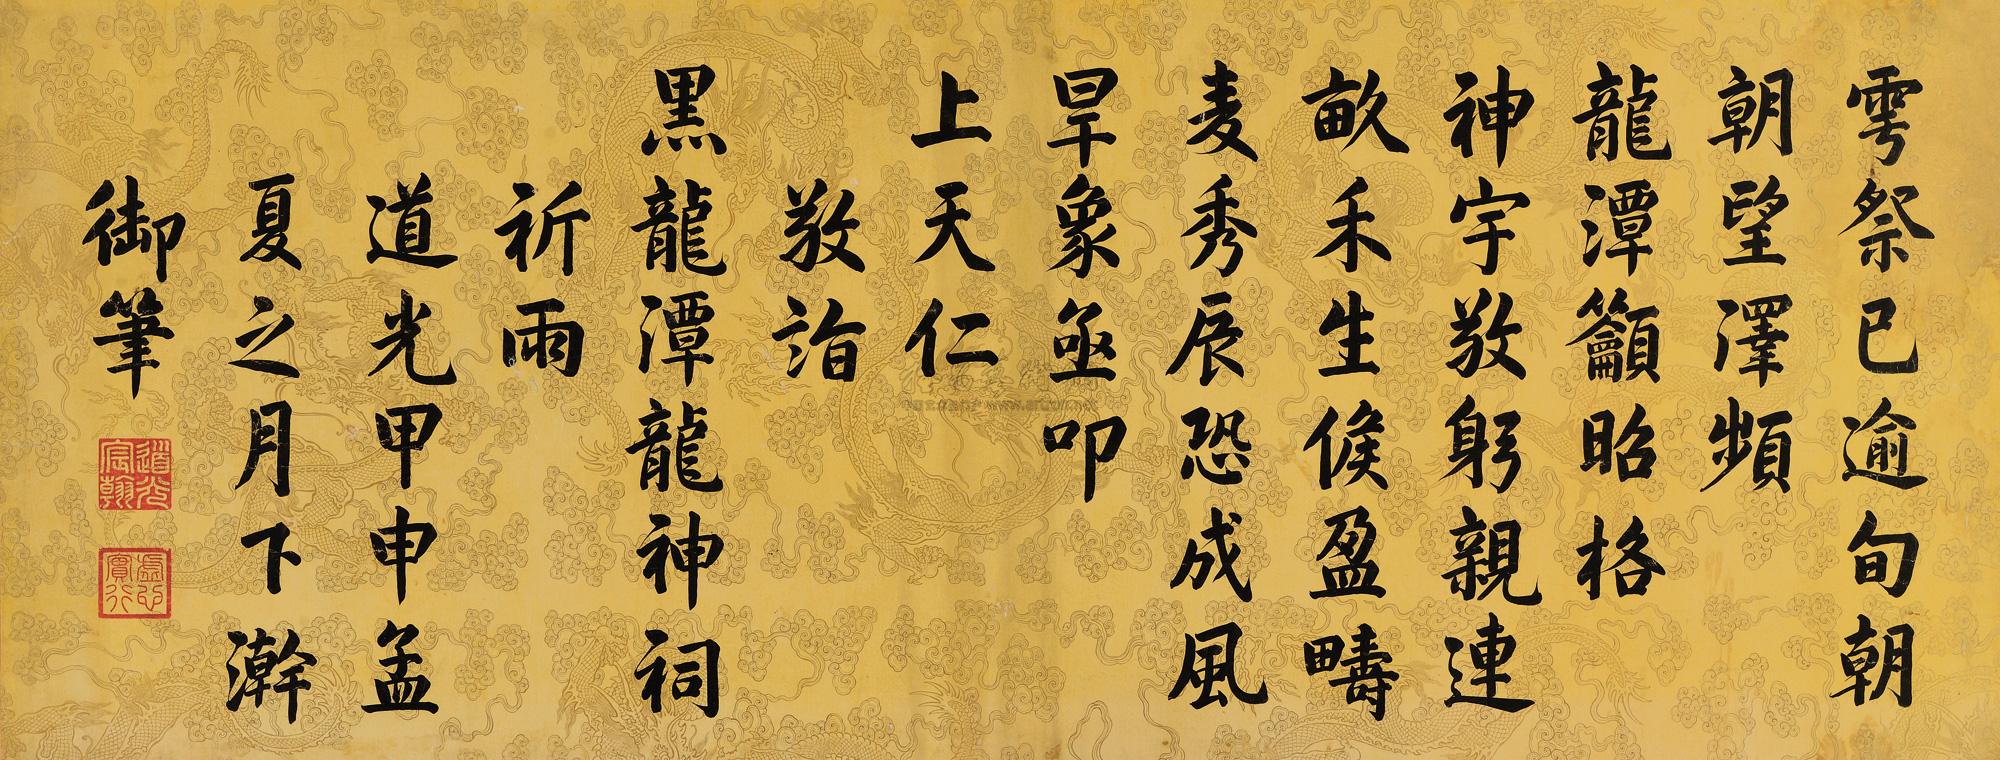 雩祭已逾旬朝
朝望澤頻
龍潭籲昭格
神宇敬躬親連
畝禾生候盈疇
麦秀辰恐成風
旱象亟叩
上天仁
敬詣
黑龍潭龍神祠
祈雨
道光甲申孟
夏之月下澣
御筆
道光宸翰
虛心實行